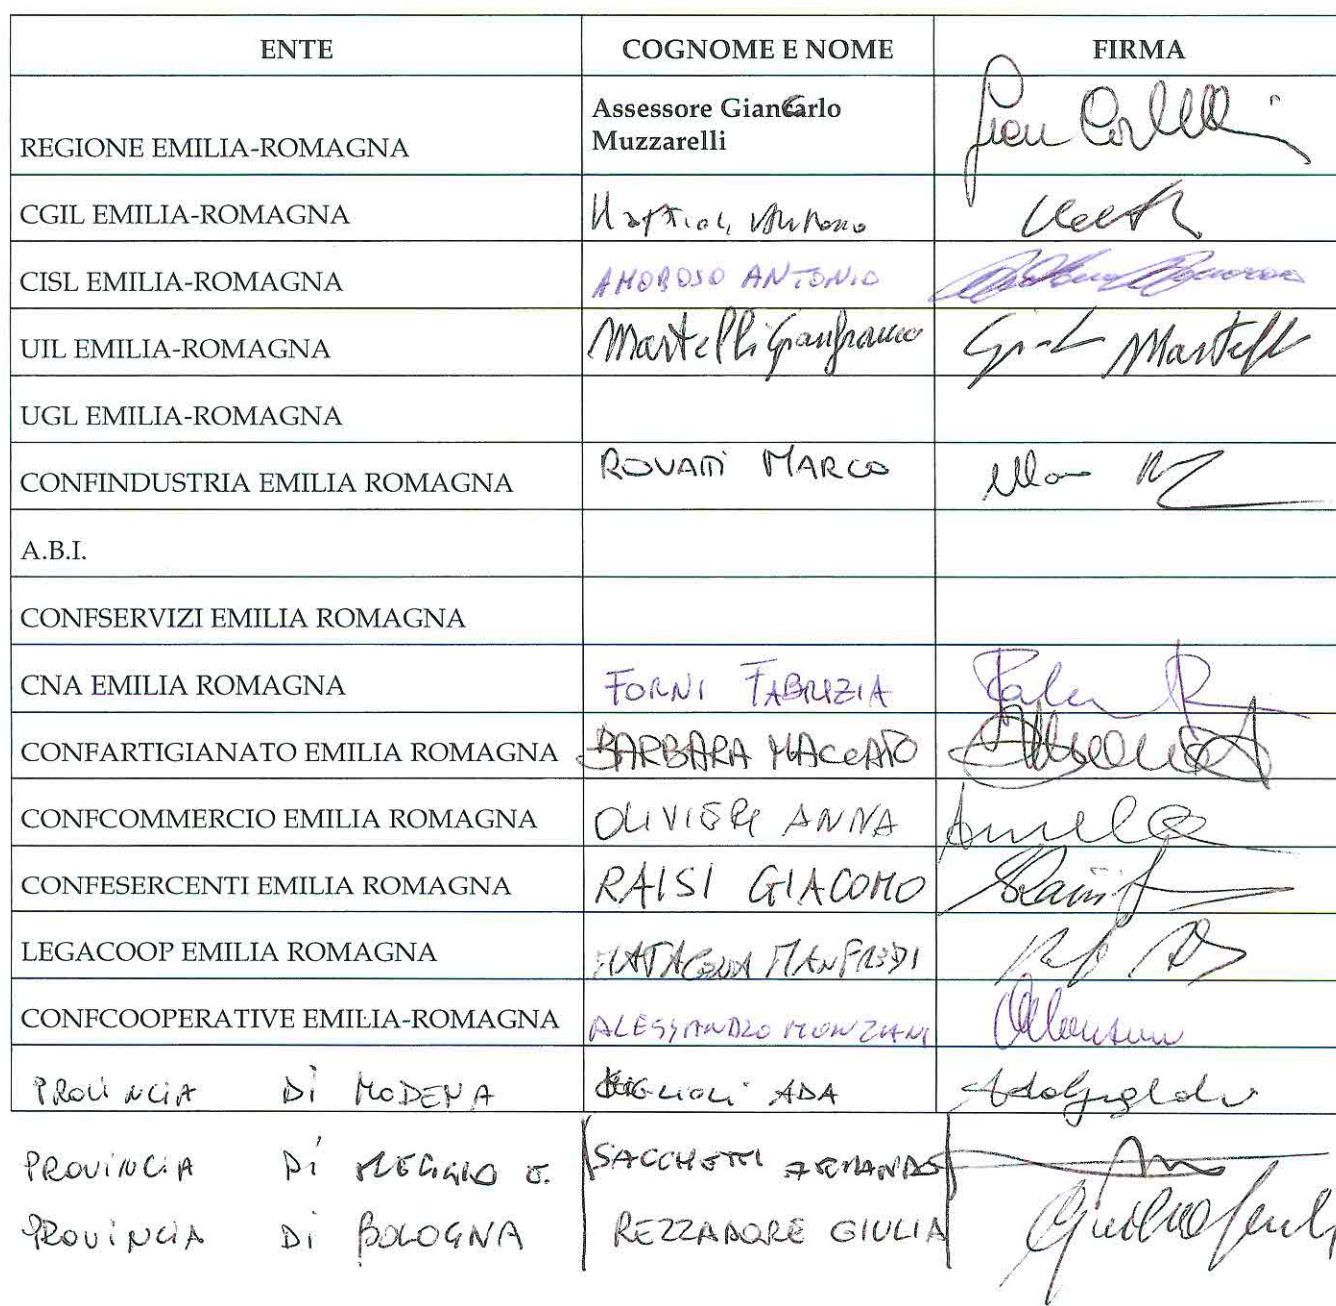 ENTE COGNOME E NOME FIRMA
Assessore Giancarlo
Muzzarelli
REGIONE EMILIA-ROMAGNA Gian Carlo
CGIL EMILIA-ROMAGNA Mattioli Antonio
CISL EMILIA-ROMAGNA AMOROSO ANTONIO
UIL EMILIA-ROMAGNA Martelli Gianfranco Martelli
UGL EMILIA-ROMAGNA
CONFINDUSTRIA EMILIA ROMAGNA ROVATTI MARCO
A.B.I.
CONFSERVIZI EMILIA ROMAGNA
CNA EMILIA ROMAGNA FORNI FABRIZIA
CONFARTIGIANATO EMILIA ROMAGNA BARBARA MACCATO
CONFCOMMERCIO EMILIA ROMAGNA OLIVIERI ANNA
CONFESERCENTI EMILIA ROMAGNA RAISI GIACOMO
LEGACOOP EMILIA ROMAGNA MANFREDI
CONFCOOPERATIVE EMILIA-ROMAGNA ALESSANDRO MONZIANI
PROVINCIA DI MODENA ADA
PROVINCIA DI REGGIO E. SACCHETTI ARMANDO
PROVINCIA DI BOLOGNA REZZADORE GIULIA